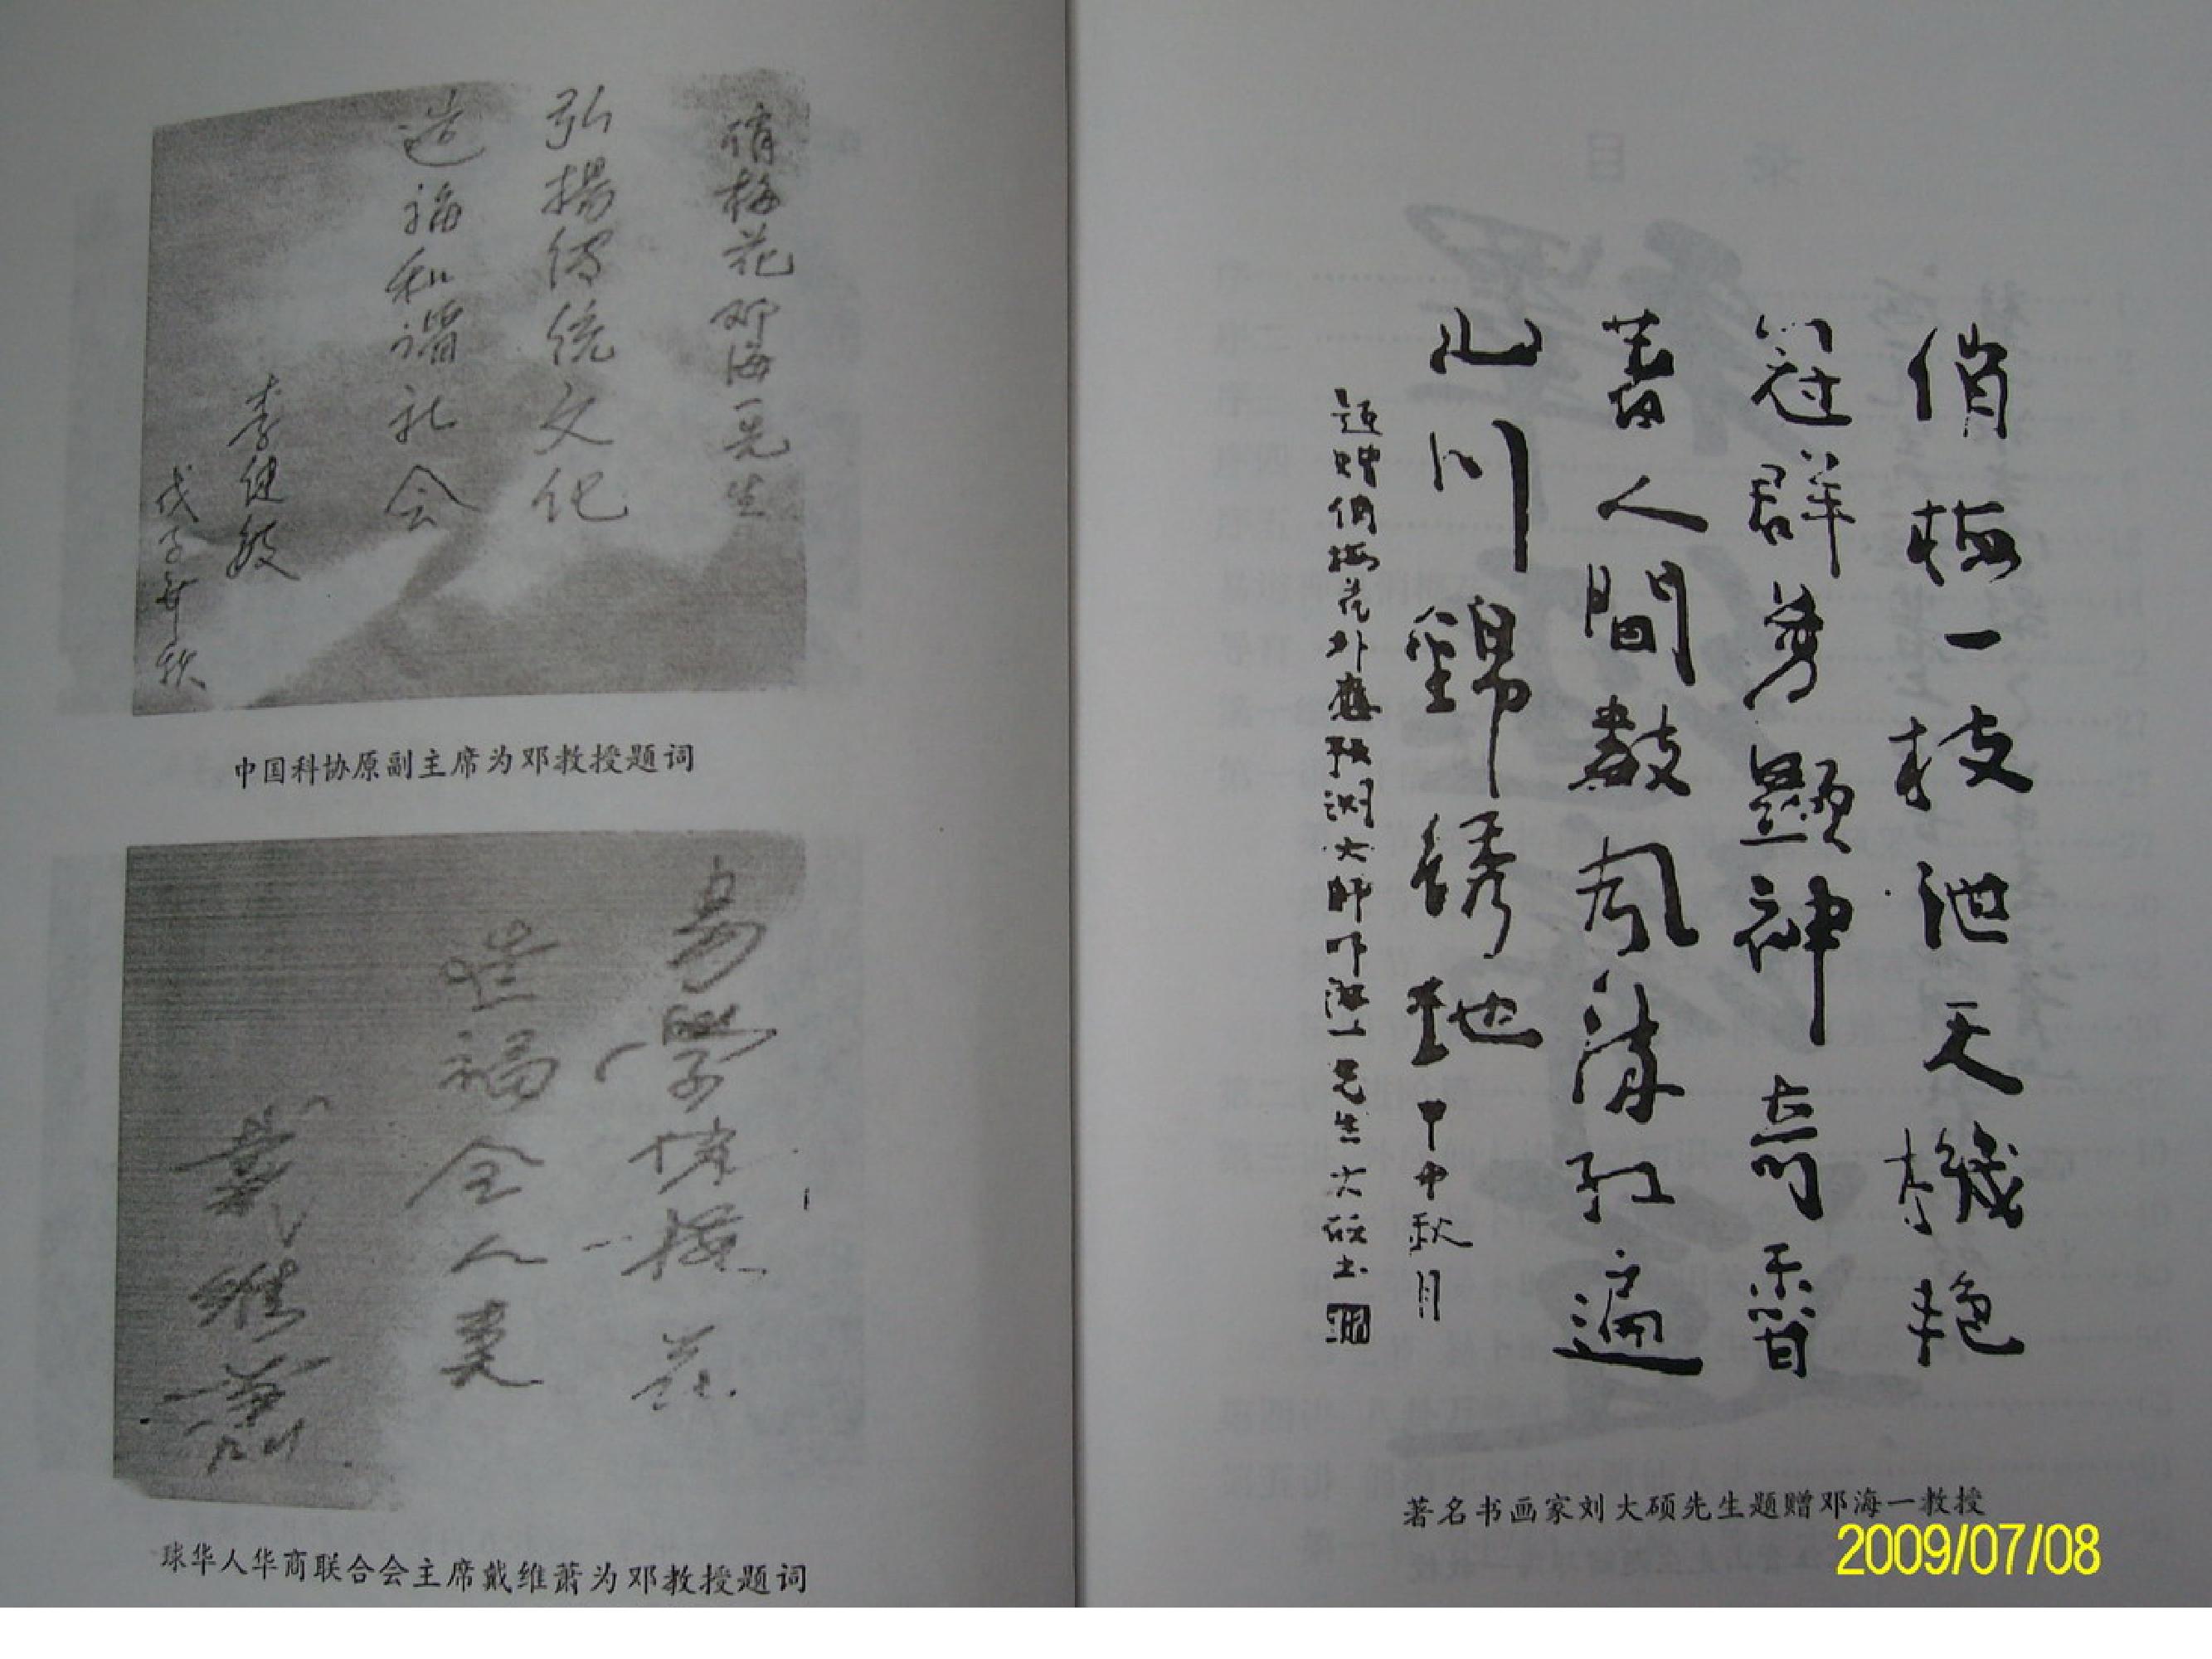 俏梅花邓海一先生
弘揚傳统文化
造福和谐社会
李健毅
戊子年秋
中国科协原副主席为邓教授题词
易学俏梅花
造福全人类
戴维萧
球华人华商联合会主席戴维萧为邓教授题词
俏梅一枝泄天機艳
冠群芳顯神奇香
蓄人間數風流红遍
山川錦绣地
甲申秋月
题赠俏梅花外應预测大师邓海一先生大硕书
著名书画家刘大硕先生题赠邓海一教授
2009/07/08